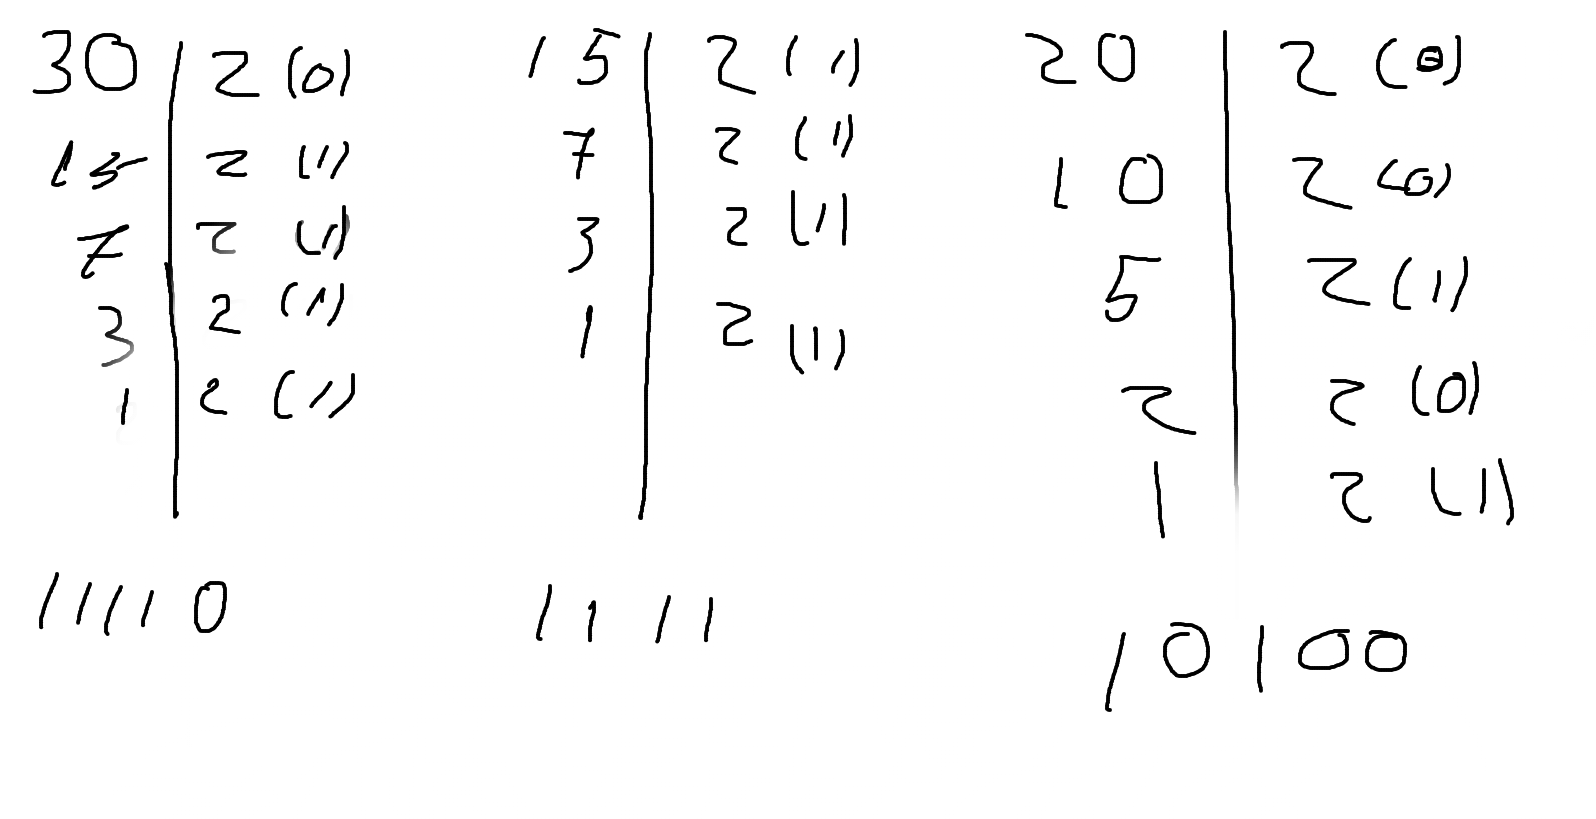 30 | 2 (0)
15 | 2 (1)
7 | 2 (1)
3 | 2 (1)
1 | 2 (1)
11110
15 | 2 (1)
7 | 2 (1)
3 | 2 (1)
1 | 2 (1)
1111
20 | 2 (0)
10 | 2 (0)
5 | 2 (1)
2 | 2 (0)
1 | 2 (1)
10100